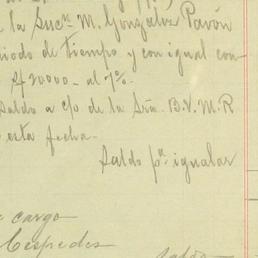 la Sucn M. Gonzalez Pavón
iodo de tiempo y con igual con
$20000.- al 7%.
saldo a c/o de la Sra. B.V.M.R
esta fecha.
Saldo pa igualar
cargo
Cespedes
saldo